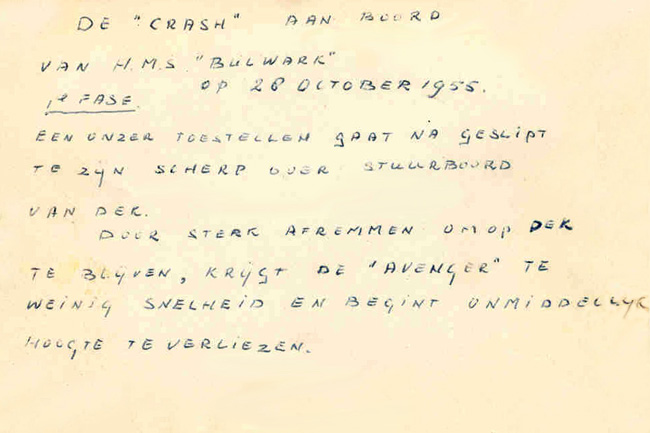 DE "CRASH" AAN BOORD
VAN H.M.S. "BULWARK"
OP 28 OCTOBER 1955.
1e FASE.
EEN ONZER TOESTELLEN GAAT NA GESLIPT
TE ZIJN SCHERP OVER STUURBOORD
VAN DEK.
DOOR STERK AFREMMEN OM OP DEK
TE BLIJVEN, KRIJGT DE "AVENGER" TE
WEINIG SNELHEID EN BEGINT ONMIDDELLIJK
HOOGTE TE VERLIEZEN.